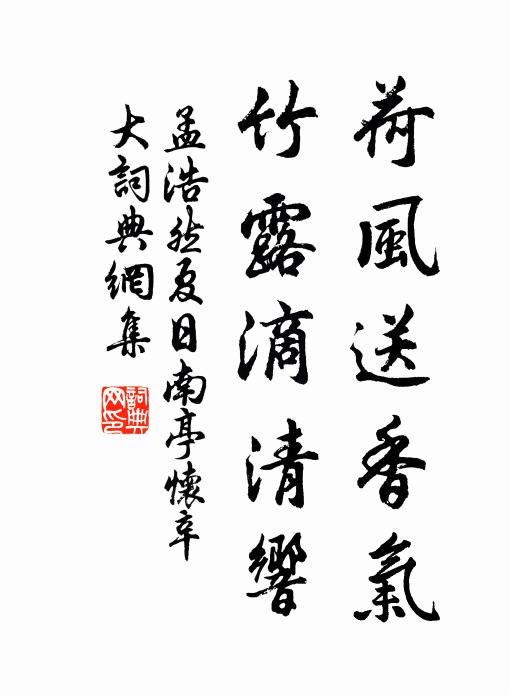 荷風送香氣
竹露滴清響
孟浩然夏日南亭懷辛
大詞典網集
詞典網印